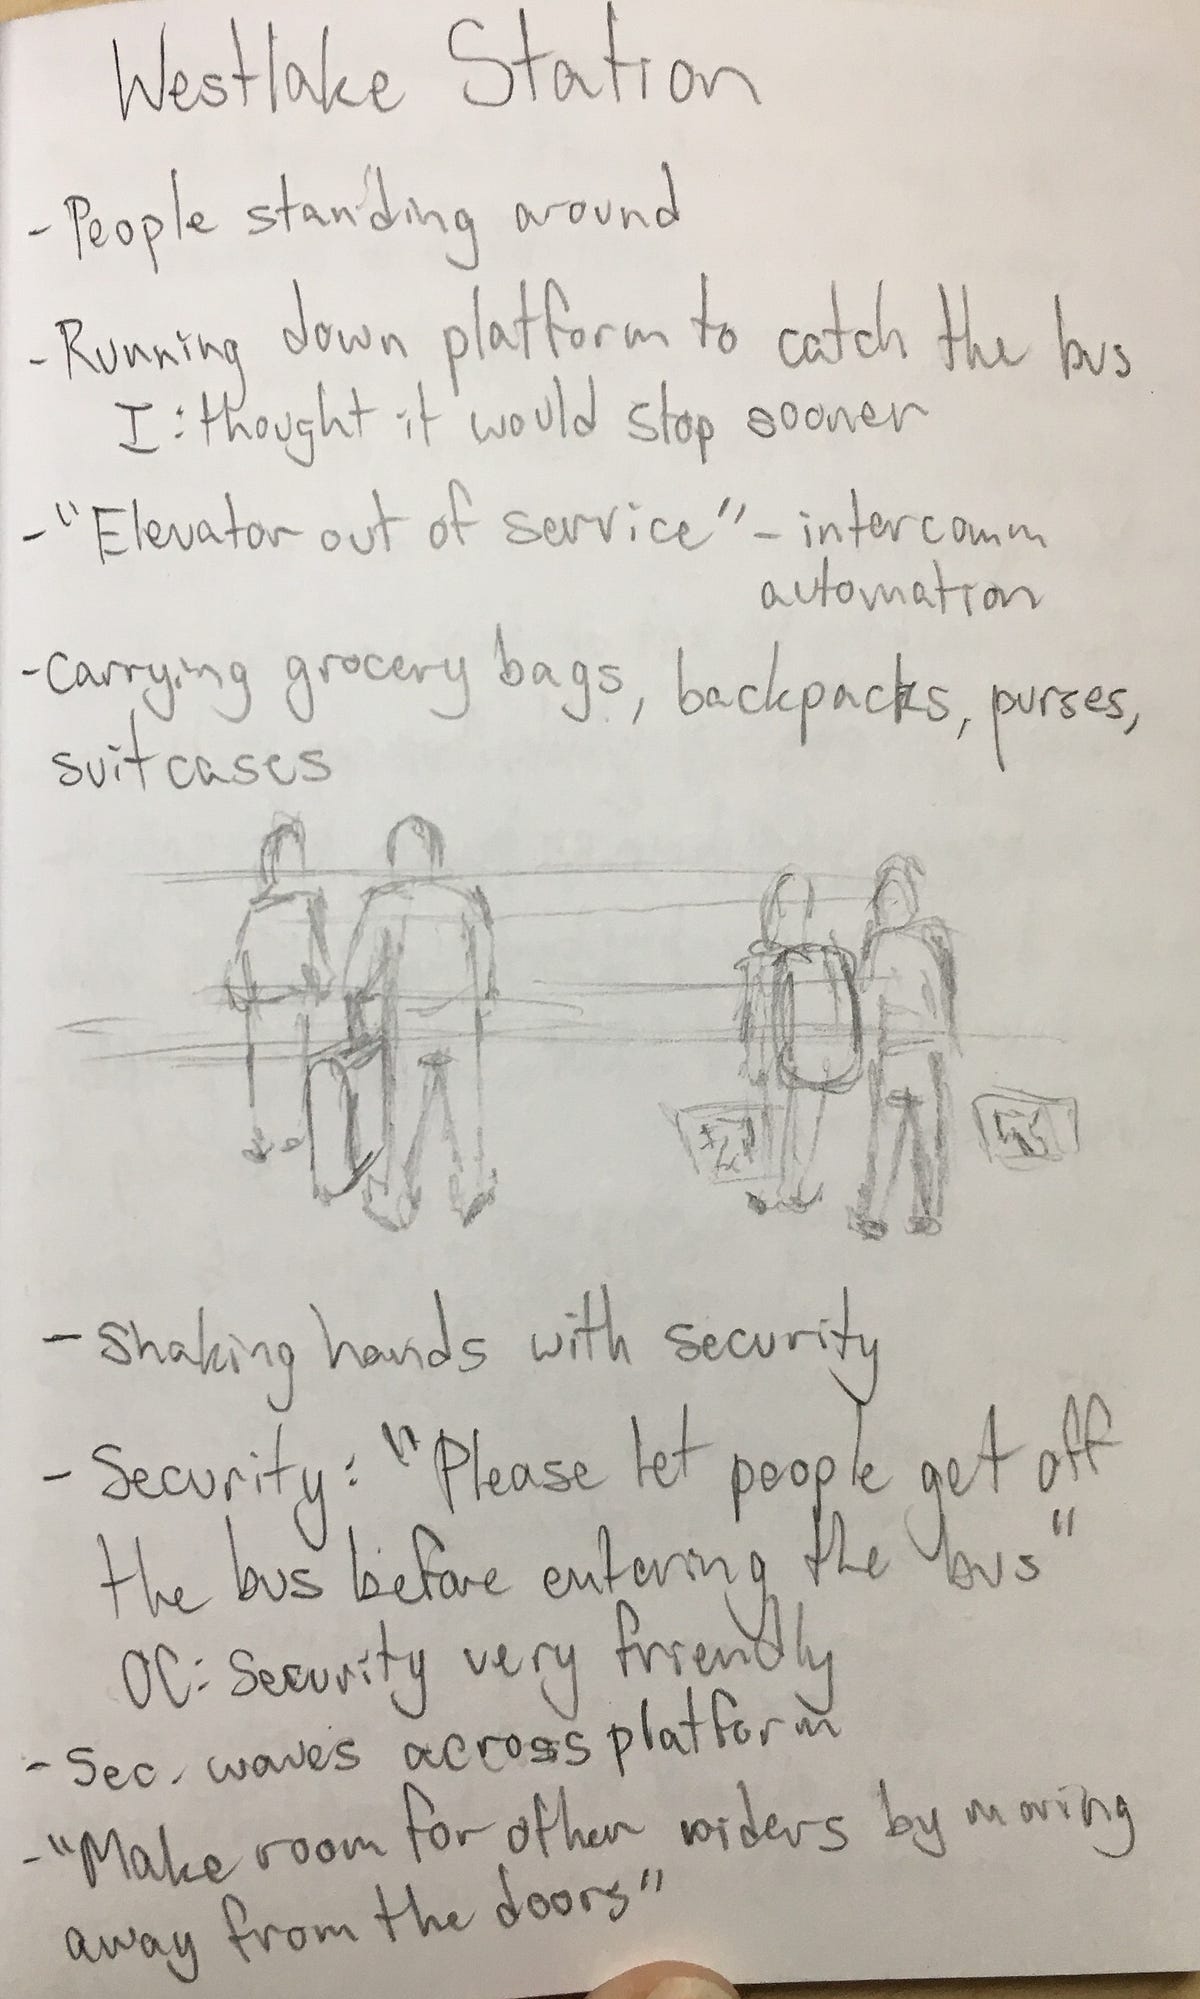 Westlake Station
- People standing around
- Running down platform to catch the bus
I: thought it would stop sooner
- "Elevator out of service" - intercomm
automation
- Carrying grocery bags, backpacks, purses,
suitcases
- Shaking hands with security
- Security: "Please let people get off
the bus before entering the bus"
OC: Security very friendly
- Sec. waves across platform
- "Make room for other riders by moving
away from the doors"